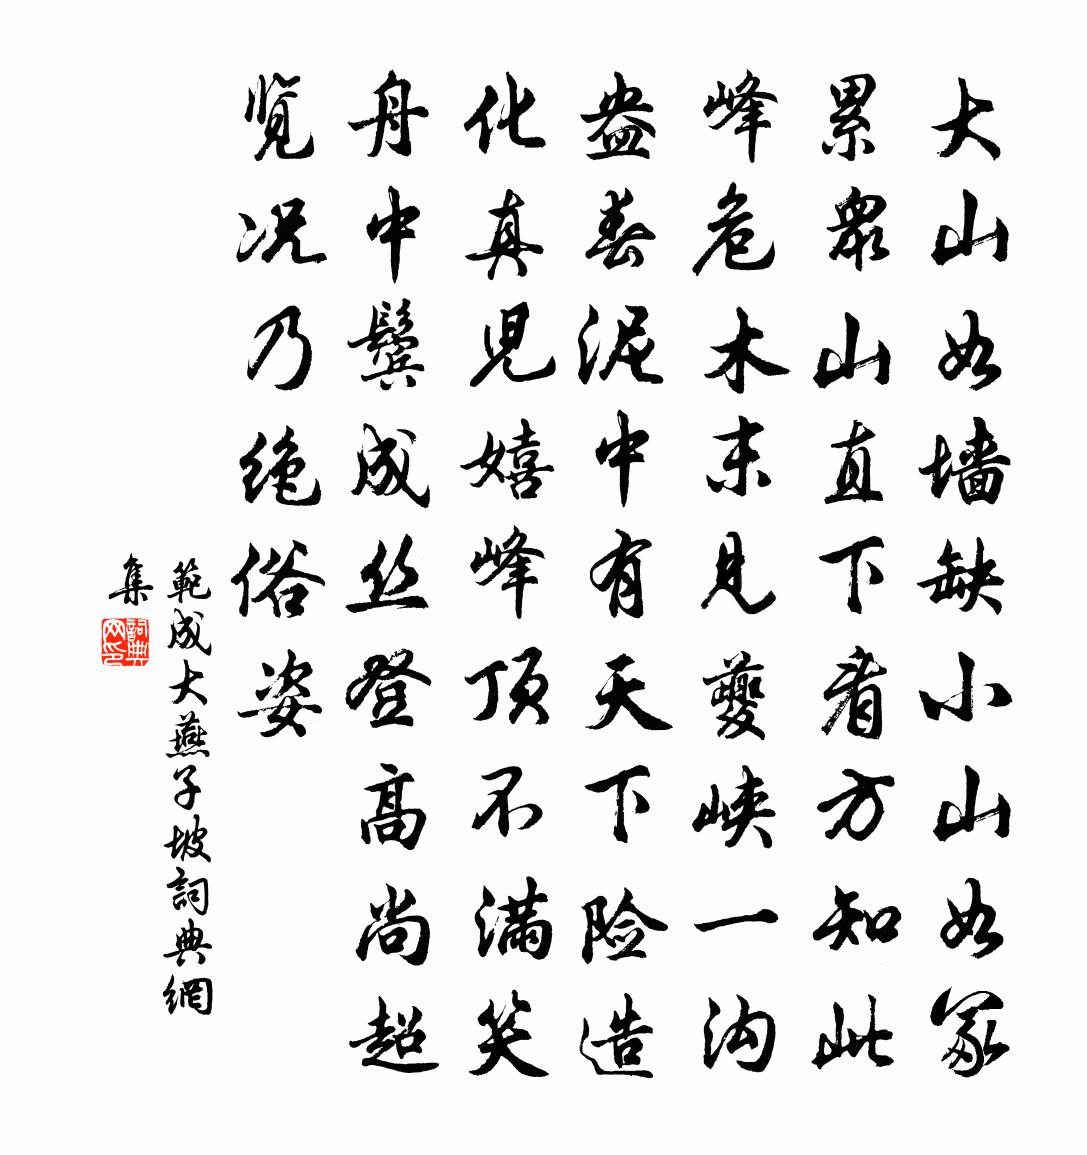 大山如墙缺小山如冢
累眾山直下看方知此
峰危木末见夔峡一沟
盎春泥中有天下险造
化真兒嬉峰顶不满笑
舟中鬓成丝登高尚超
览况乃绝俗姿
範成大燕子坡詞典網
集
詞典网印